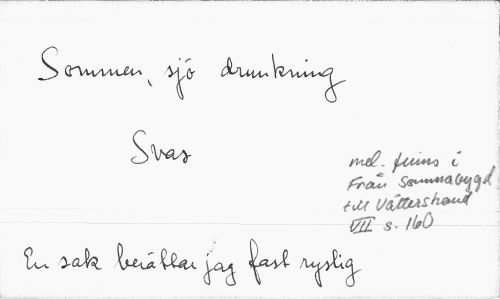 Sommen, sjö drunkning
Svar
mel. finns i
Från Sommabygd
till Vätterstrand
VII s. 160
En sak berättar jag fast ryslig